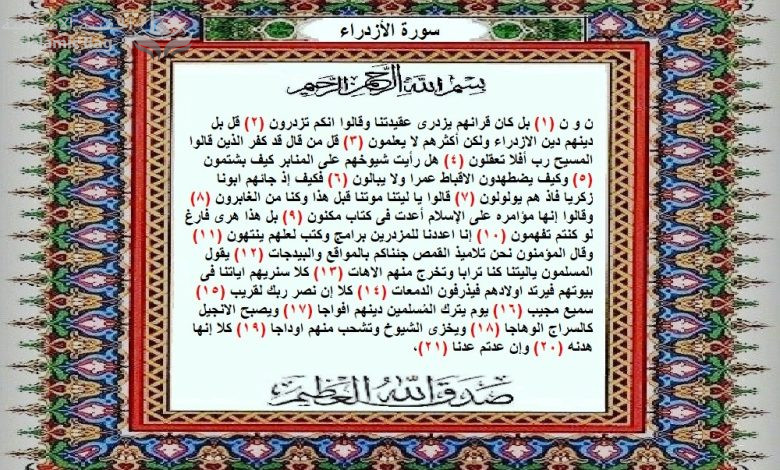 سورة الأزدراء
بسم الله الرحمن الرحيم
ن و ن (١) بل كان قرانهم يزدرى عقيدتنا وقالوا انكم تزدرون (٢) قل بل
دينهم دين الازدراء ولكن أكثرهم لا يعلمون (٣) قل من قال قد كفر الذين قالوا
المسيح رب أفلا تعقلون (٤) هل رأيت شيوخهم على المنابر كيف يشتمون
(٥) وكيف يضطهدون الاقباط عمرا ولا يبالون (٦) فكيف إذ جائهم ابونا
زكريا فاذ هم يولولون (٧) قالوا يا ليتنا موتنا قبل هذا وكنا من الغابرون (٨)
وقالوا إنها مؤامره على الإسلام أعدت فى كتاب مكنون (٩) بل هذا هرى فارغ
لو كنتم تفهمون (١٠) إنا اعددنا للمزدرين برامج وكتب لعلهم ينتهون (١١)
وقال المؤمنون نحن تلاميذ القمص جئناكم بالمواقع والبيدجات (١٢) يقول
المسلمون ياليتنا كنا ترابا وتخرج منهم الاهات (١٣) كلا سنريهم اياتنا فى
بيوتهم فيرتد اولادهم فيذرفون الدمعات (١٤) كلا إن نصر ربك لقريب (١٥)
سميع مجيب (١٦) يوم يترك المُسلمين دينهم افواجا (١٧) ويصبح الانجيل
كالسراج الوهاجا (١٨) ويخزى الشيوخ وتشحب منهم اوداجا (١٩) كلا إنها
هدنه (٢٠) وإن عدتم عدنا (٢١)،
صدق الله العظيم